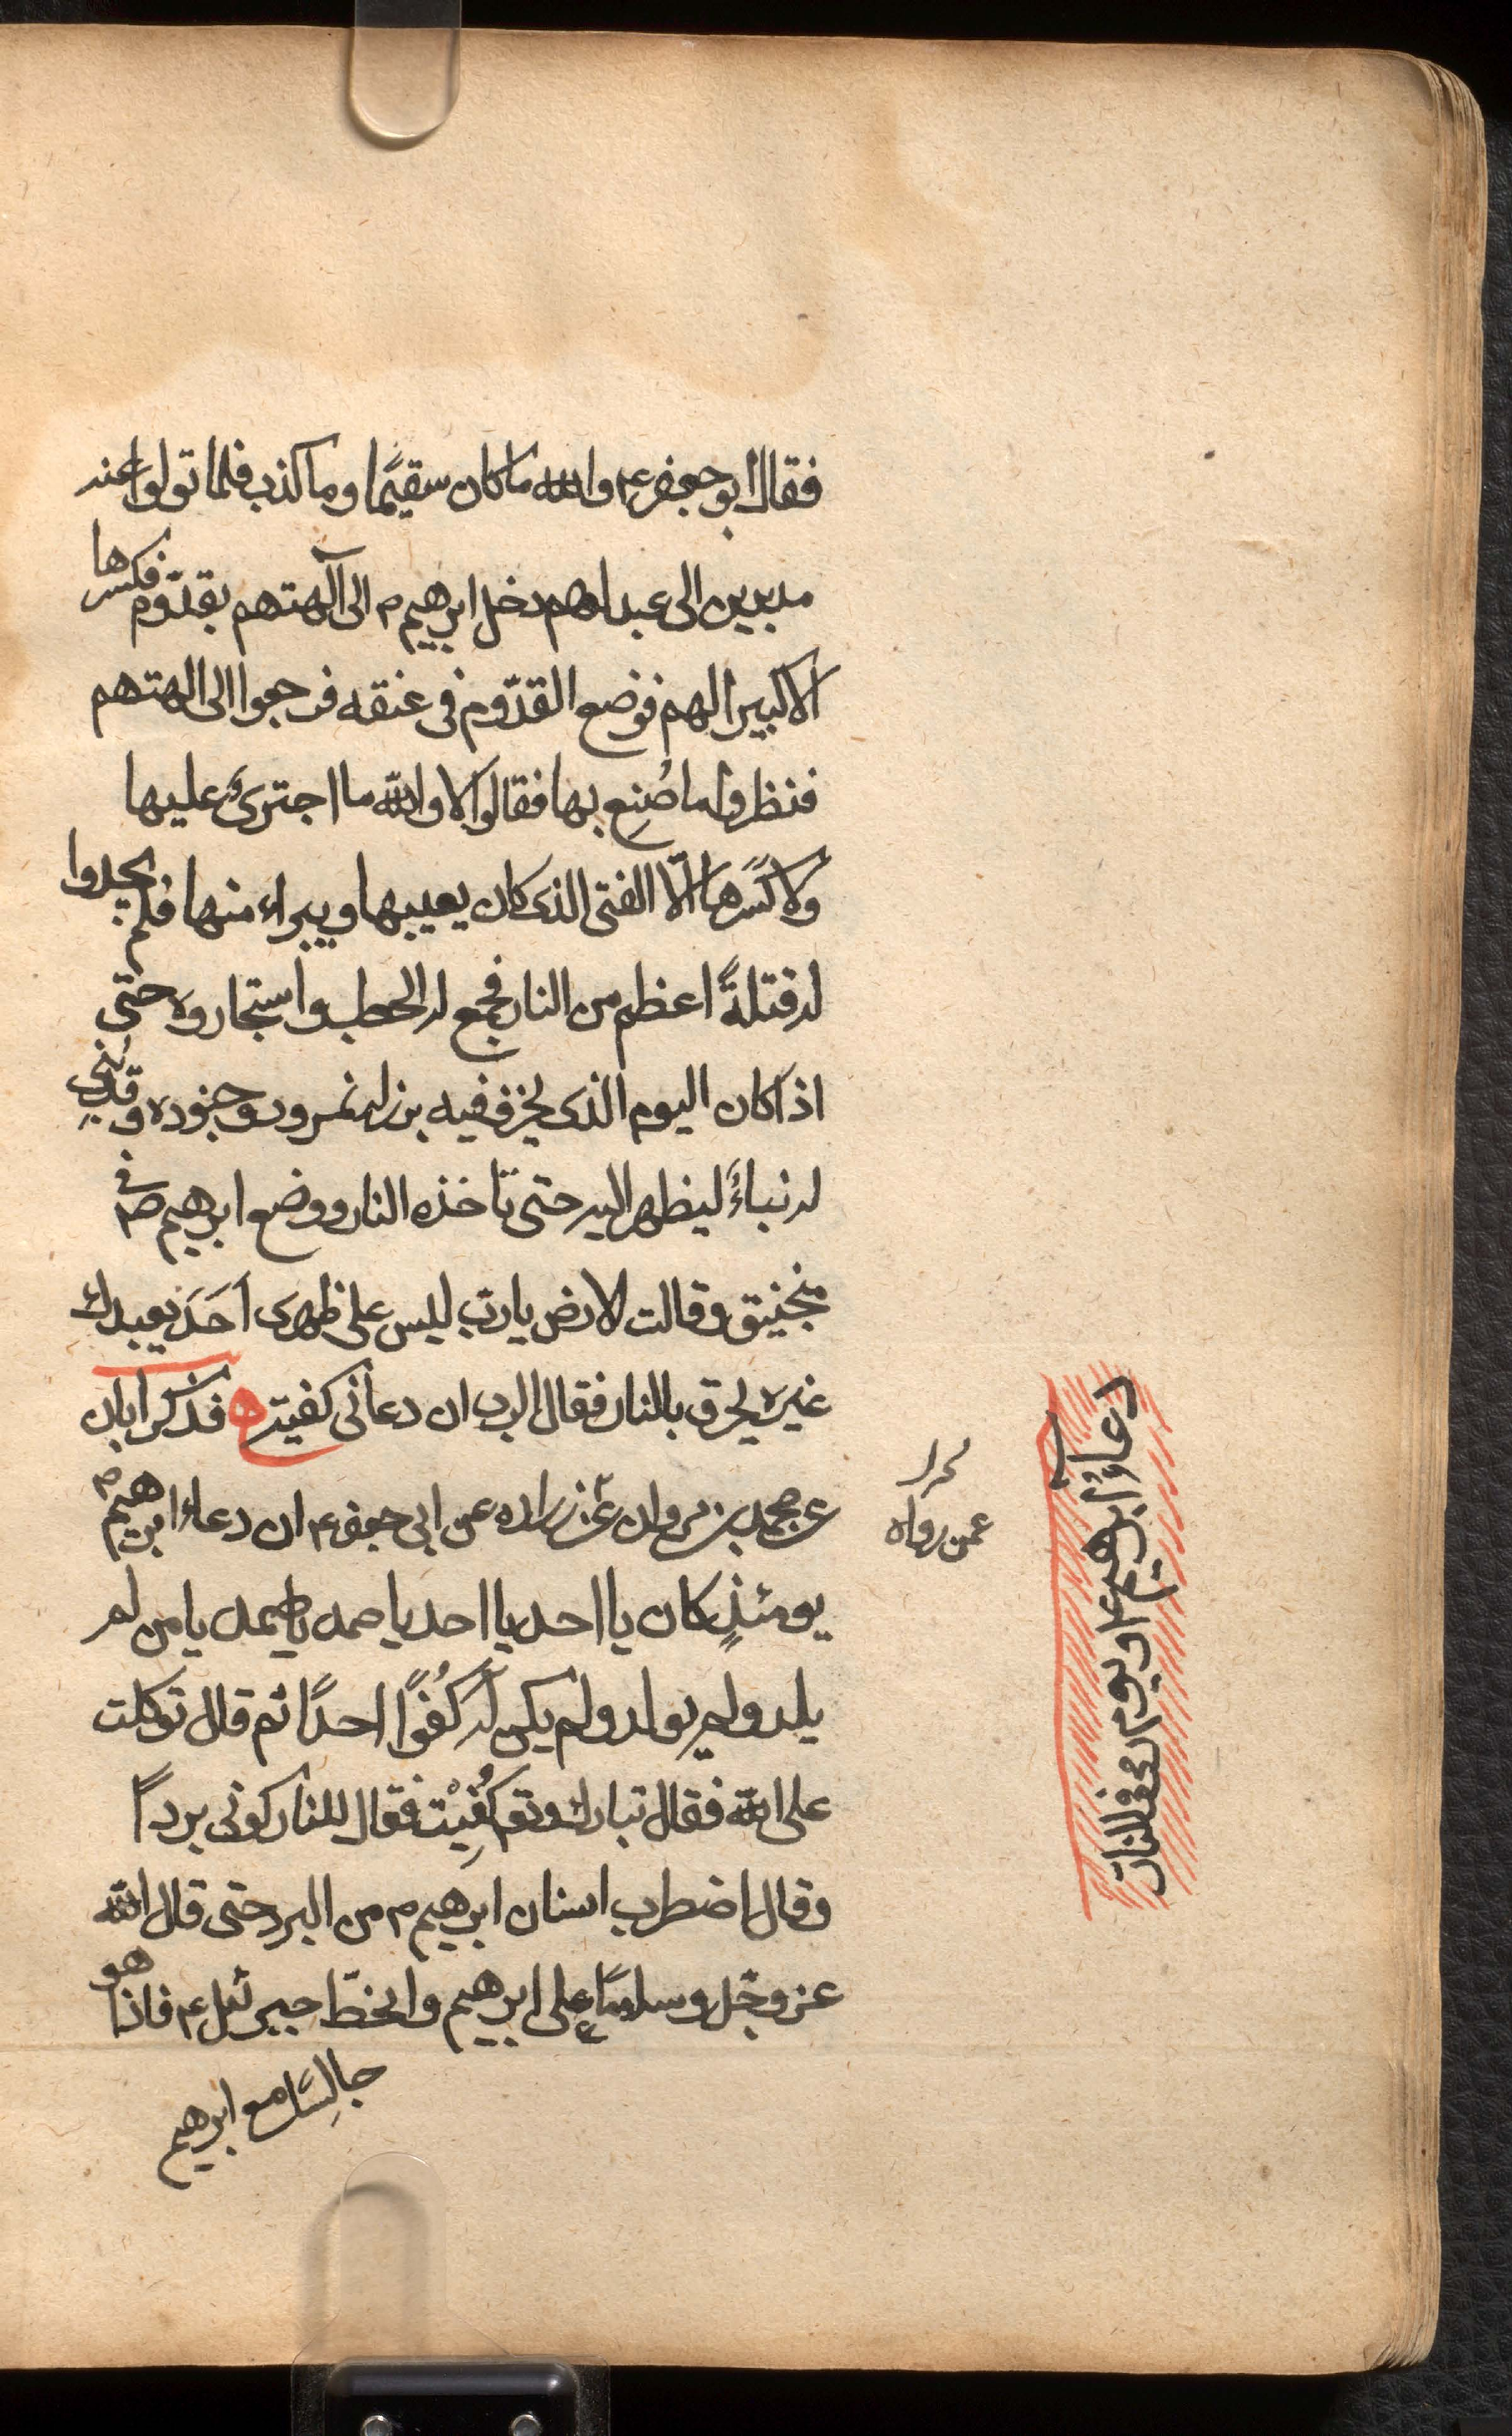 فقال ابو جعفر ع۴ والله ما كان سقيمًا وما كذب فلما تولوا عنه
مدبرين الى عيد لهم دخل ابرهيم م الى آلهتهم بقدّوم فكسرها
الا كبيرا لهم فوضع القدّوم فى عنقه فرجعوا الى الهتهم
فنظروا ما صُنِع بها فقالوا لا والله ما اجترىَٔ عليها
ولا كَسَرها الّا الفتى الذى كان يعيبها ويبراء منها فلم يجدوا
له قتلةً اعظم من النار فجمع له الحطب واستجاروه حتى
اذا كان اليوم الذى يحرق فيه برز له نمرود وجنوده وقد بُنِى
له بناءً لينظر اليه حتى تاخذه النار ووضع ابرهيم ع۴ فى
منجنيق وقالت الارض يا ربّ ليس على ظهرى اَحَدَ يعبدك
غيره يحرق بالنار فقال الرب ان دعانى كفيته ه فذكر ابان
عن محمد بن مروان عن زراره عن ابى جعفر ع۴ ان دعاء ابرهيم م
يومئذٍ كان يا احد يا احد يا صمد يا صمد يا من لم
يلد ولم يولد ولم يكن له كُفُوًا احدًا ثم قال توكلت
على الله فقال تبارك وتع۴ كُفِيْت فقال للنار كونى بردًا
وقال اضطرب اسنان ابرهيم م من البرد حتى قال الله
عز وجّل وسلامًا على ابرهيم وانحطّ جبرئيل ع۴ فاذا هو
جالِسًا مع ابرهيم
عمن رواه
دعاؤُ ابرهيم ع۴ يوم رمى فى النار